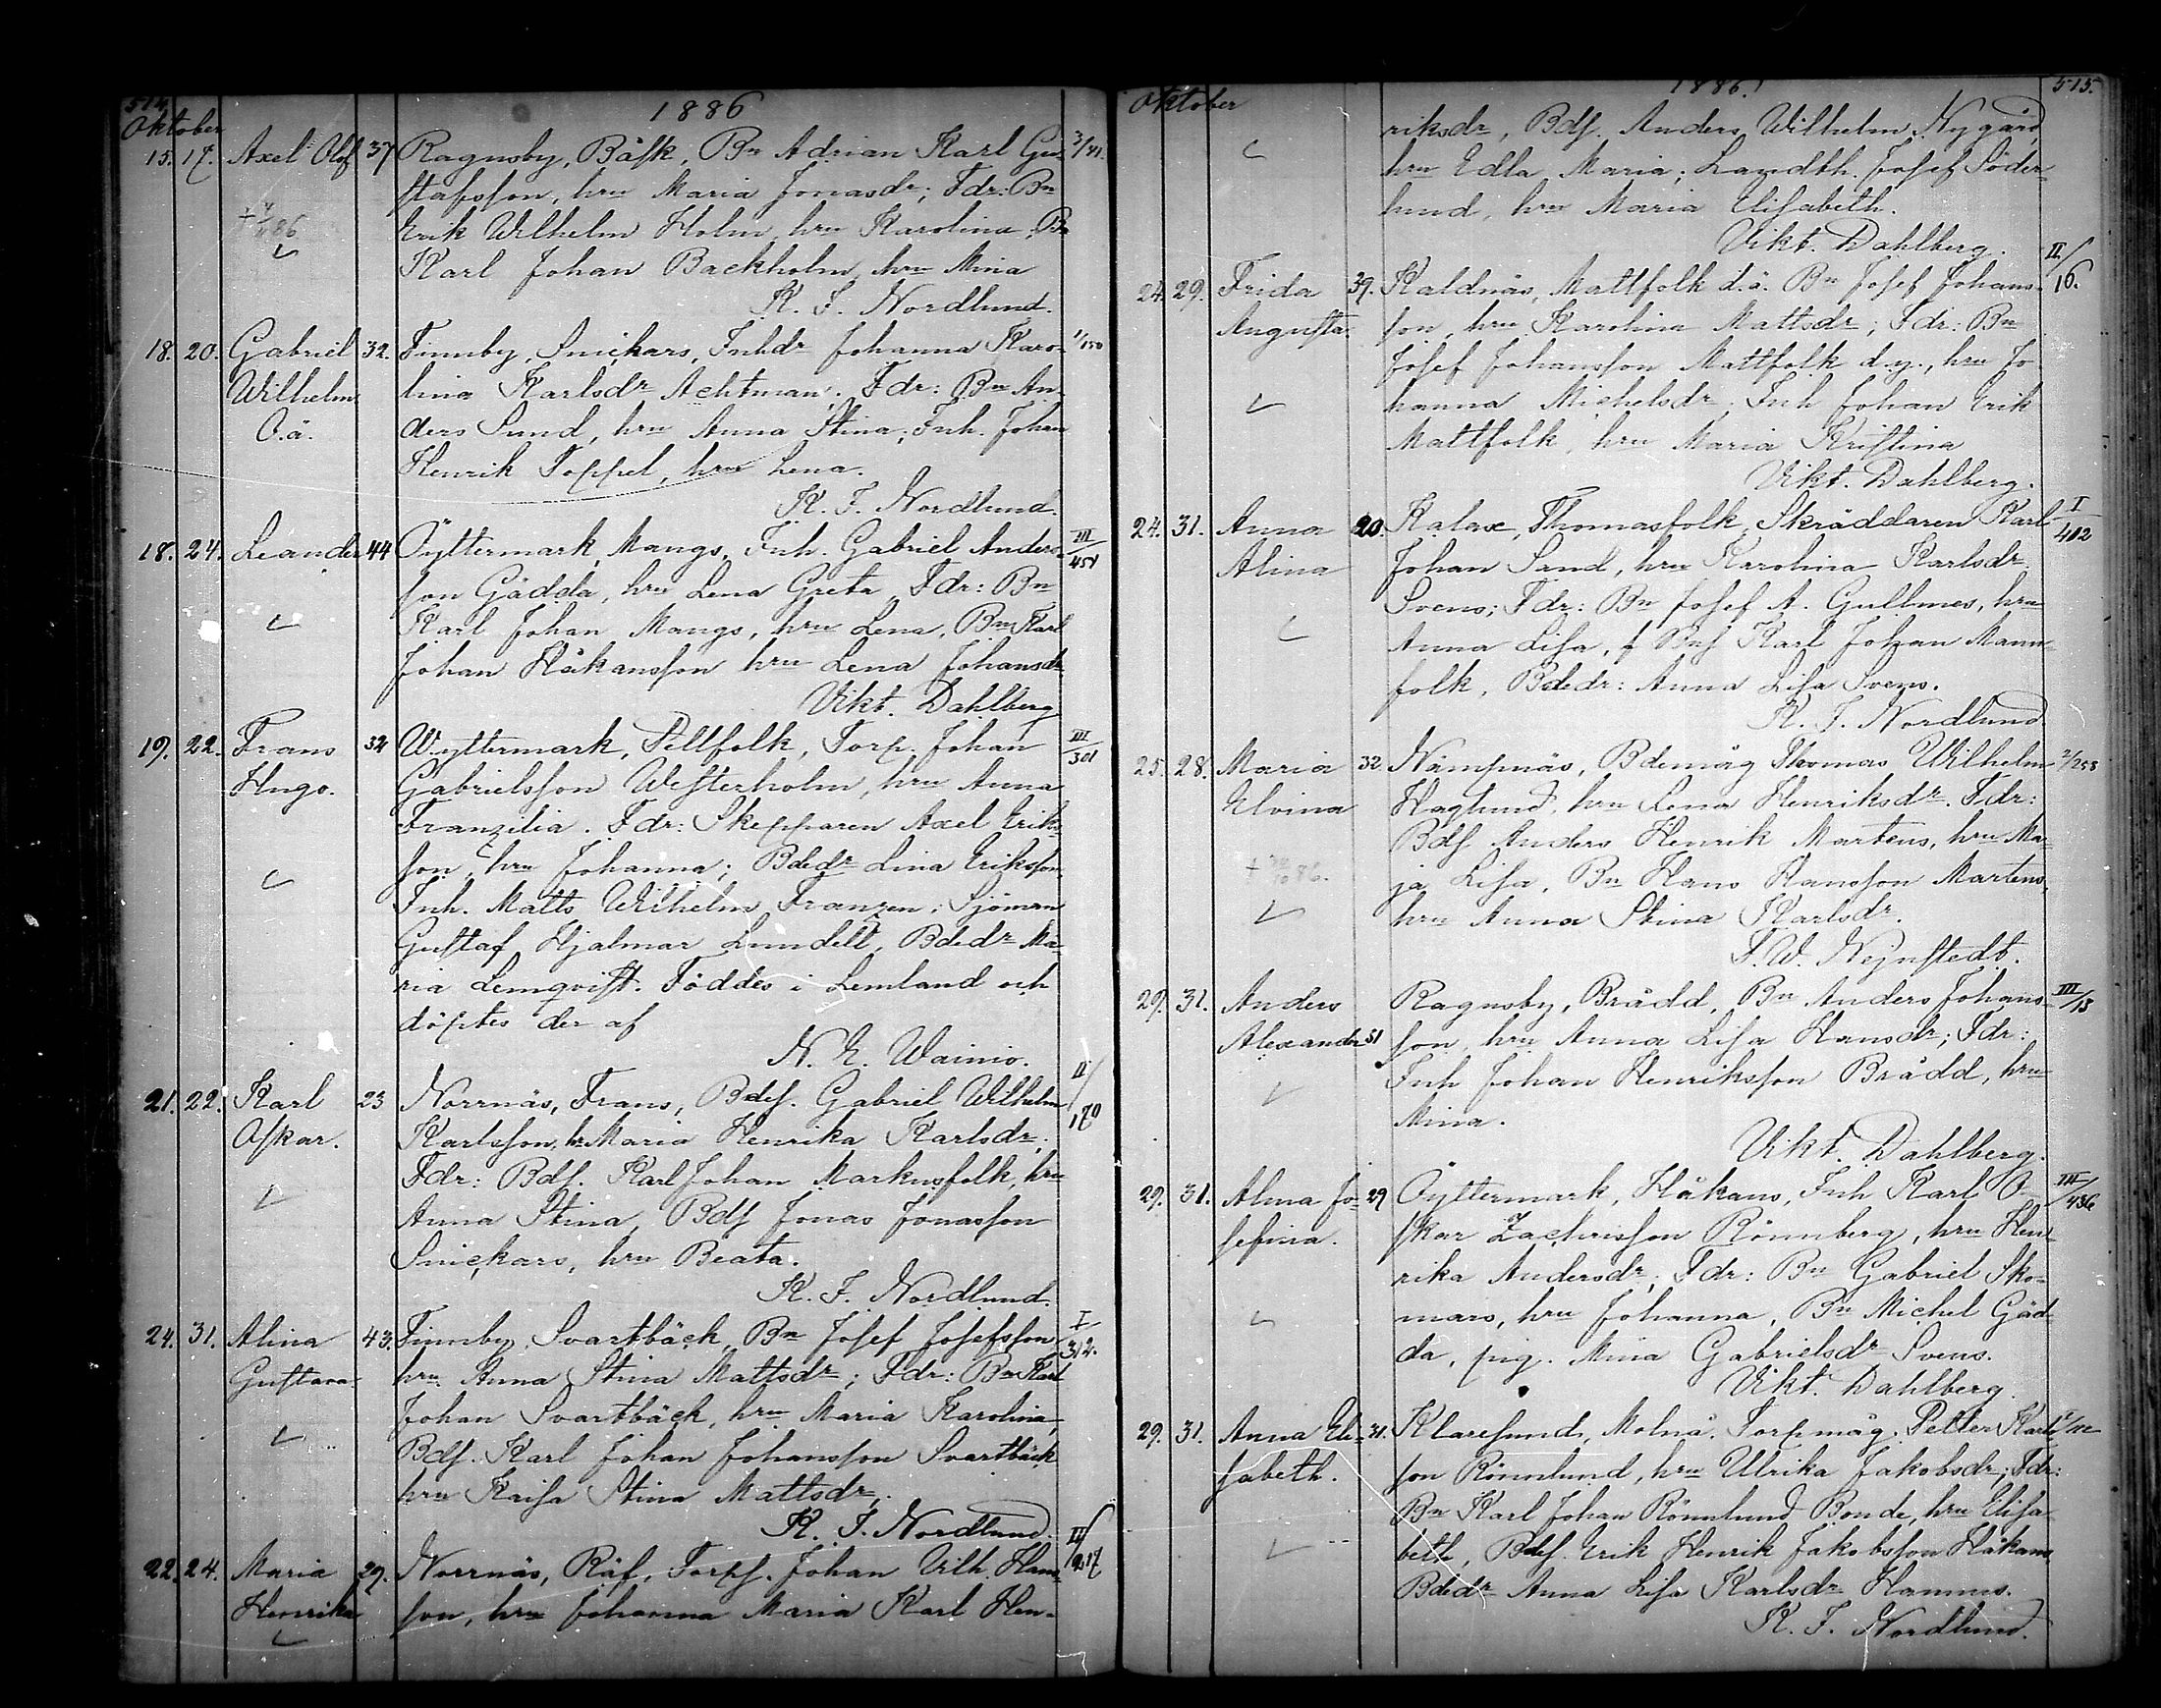 514.
1886
Oktober
15. 17. Axel Olof 37 Ragnsby, Båsk, Bn Adrian Karl Gu- 3/41.
stafsson, hru Maria Jonasdr; Fdr: Bn
Erik Wilhelm Holm, hru Karolina, Bn
Karl Johan Backholm, hru Mina
K. F. Nordlund.
18. 20. Gabriel 32. Finnby, Snickars, Inhdr Johanna Karo- 1/150
Wilhelm lina Karlsdr Achtman. Fdr: Bn An-
O.ä. ders Sund, hru Anna Stina; Inh. Johan
Henrik Toppel, hru Lena.
K. F. Nordlund.
18. 24. Leander 44 Öyttermark, Mangs, Inh. Gabriel Anders- III/451
son Gädda, hru Lena Greta. Fdr: Bn
Karl Johan Mangs, hru Lena, Bn Karl
Johan Håkansson hru Lena Johansdr
Vikt. Dahlberg
19. 22. Frans 32 Wyttermark, Pellfolk, Torp. Johan III/301
Hugo. Gabrielsson Westerholm, hru Anna
Franzilia. Fdr: Skepparen Axel Eriks-
son, hru Johanna; Bdedr Lina Eriksson,
Inh. Matts Wilhelm Franzen; Sjöman
Gustaf Hjalmar Lundell, Bdedr Ma-
ria Lemqvist. Föddes i Lemland och
döptes der af
N. E. Wainio.
21. 22. Karl 23 Norrnäs, Frans, Bdes. Gabriel Wilhelm II/170
Oskar. Karlsson, hr Maria Henrika Karlsdr;
Fdr: Bds. Karl Johan Markusfolk, hru
Anna Stina, Bds Jonas Jonasson
Snickars, hru Beata.
K. F. Nordlund.
24. 31. Alina 43. Finnby, Svartbäck, Bn Josef Josefsson I/312.
Gustava. hru Anna Stina Mattsdr; Fdr: Bn Karl
Johan Svartbäck, hru Maria Karolina,
Bds. Karl Johan Johansson Svartbäck
hru Kaisa Stina Mattsdr.
K. F. Nordlund.
22. 24. Maria 29. Norrnäs, Räf, Torps. Johan Vilh. Hans- II/217
Henrika son, hru Johanna Maria Karl Hen-
1886. 515.
Oktober
riksdr, Bds. Anders Wilhelm Nygård,
hru Edla Maria; Landbh. Josef Söder-
lund, hru Maria Elisabeth.
Vikt. Dahlberg.
24. 29. Frida 39. Kaldnäs, Mattfolk d.ä. Bn Josef Johans- II/16.
Augusta. son, hru Karolina Mattsdr; Fdr: Bn
Josef Johansson Mattfolk d.y., hru Jo
hanna Michelsdr, Inh Johan Erik
Mattfolk, hru Maria Kristina
Vikt. Dahlberg.
24. 31. Anna 20. Kalax, Thomasfolk, Skräddaren Karl I/412
Alina Johan Sand, hru Karolina Karlsdr
Svens; Fdr: Bn Josef A. Gullmes, hru
Anna Lisa, f Bns Karl Johan Mann-
folk, Bdedr: Anna Lisa Svens.
K. F. Nordlund.
25. 28. Maria 32. Nämpnäs, Bdemåg Thomas Wilhelm 2/258
Elvina Haglund, hru Lena Henriksdr. Fdr:
Bds Anders Henrik Martens, hru Ma-
ja Lisa, Bn Hans Hansson Martens,
hru Anna Stina Karlsdr.
F. W. Nejnstedt.
29. 31. Anders Ragnsby, Brådd, Bn Anders Johans- III/13
Alexander 51 son, hru Anna Lisa Hansdr; Fdr:
Inh Johan Henriksson Brådd, hru
Mina.
Vikt. Dahlberg.
29. 31. Alma Jo- 29 Öyttermark, Håkans, Inh Karl O- III/436
sefina. skar Zachrisson Rönnberg, hru Hen-
rika Andersdr; Fdr: Bn Gabriel Sko-
mars, hru Johanna, Bn Michel Gäd-
da, pig. Mina Gabrielsdr Svens.
Vikt. Dahlberg.
29. 31. Anna Eli- 31. Klaresund, Molnå. Torpmåg. Petter Karls-
sabeth. son Rönnlund, hru Ulrika Jakobsdr; Fdr:
Bn Karl Johan Rönnlund Bonde, hru Elisa-
beth, Bdes. Erik Henrik Jakobsson Håkans,
Bdedr Anna Lisa Karlsdr Hannus.
K. F. Nordlund.